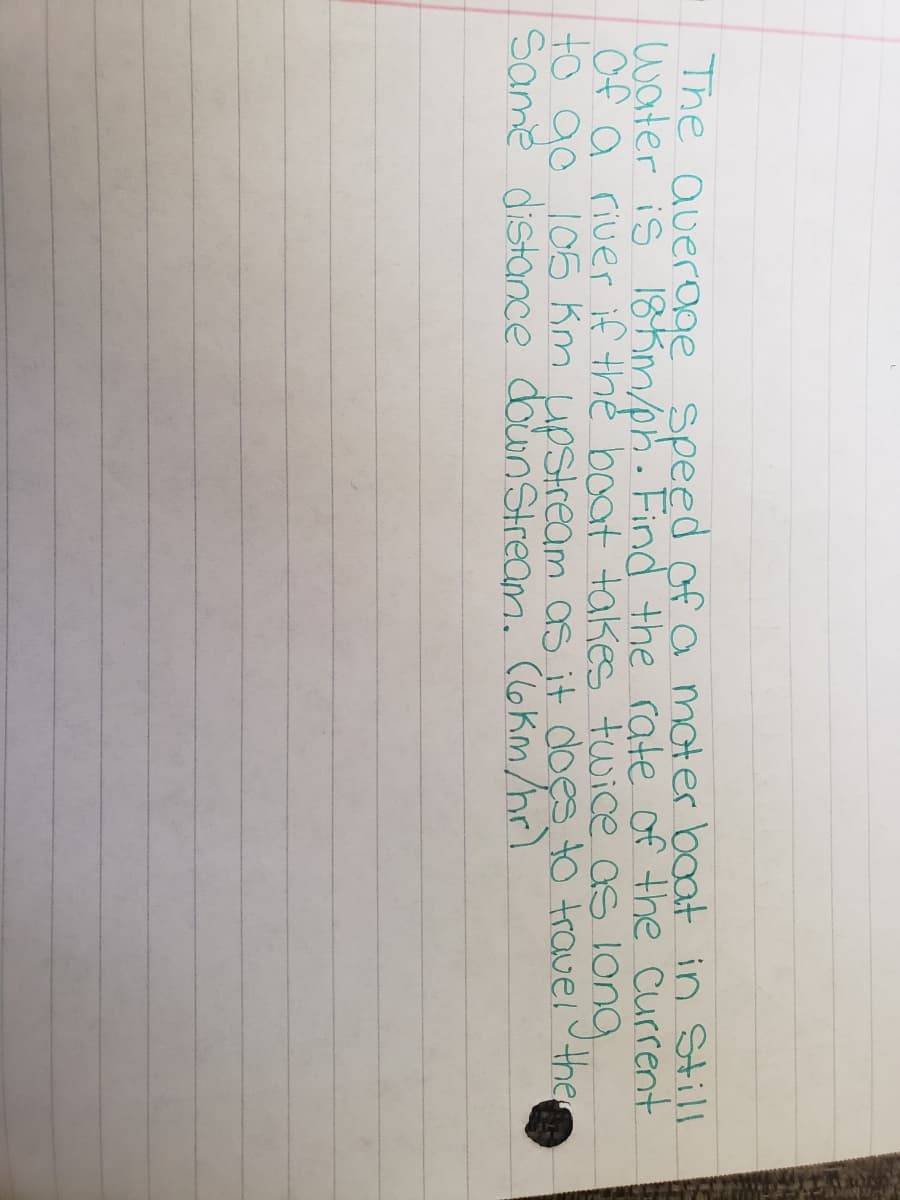 The average speed of a moter boat in still
water is 18km/ph. Find the rate of the current
of a river if the boat takes twice as long
to go 105 km upstream as it does to travel the
same distance downstream. (6km/hr)